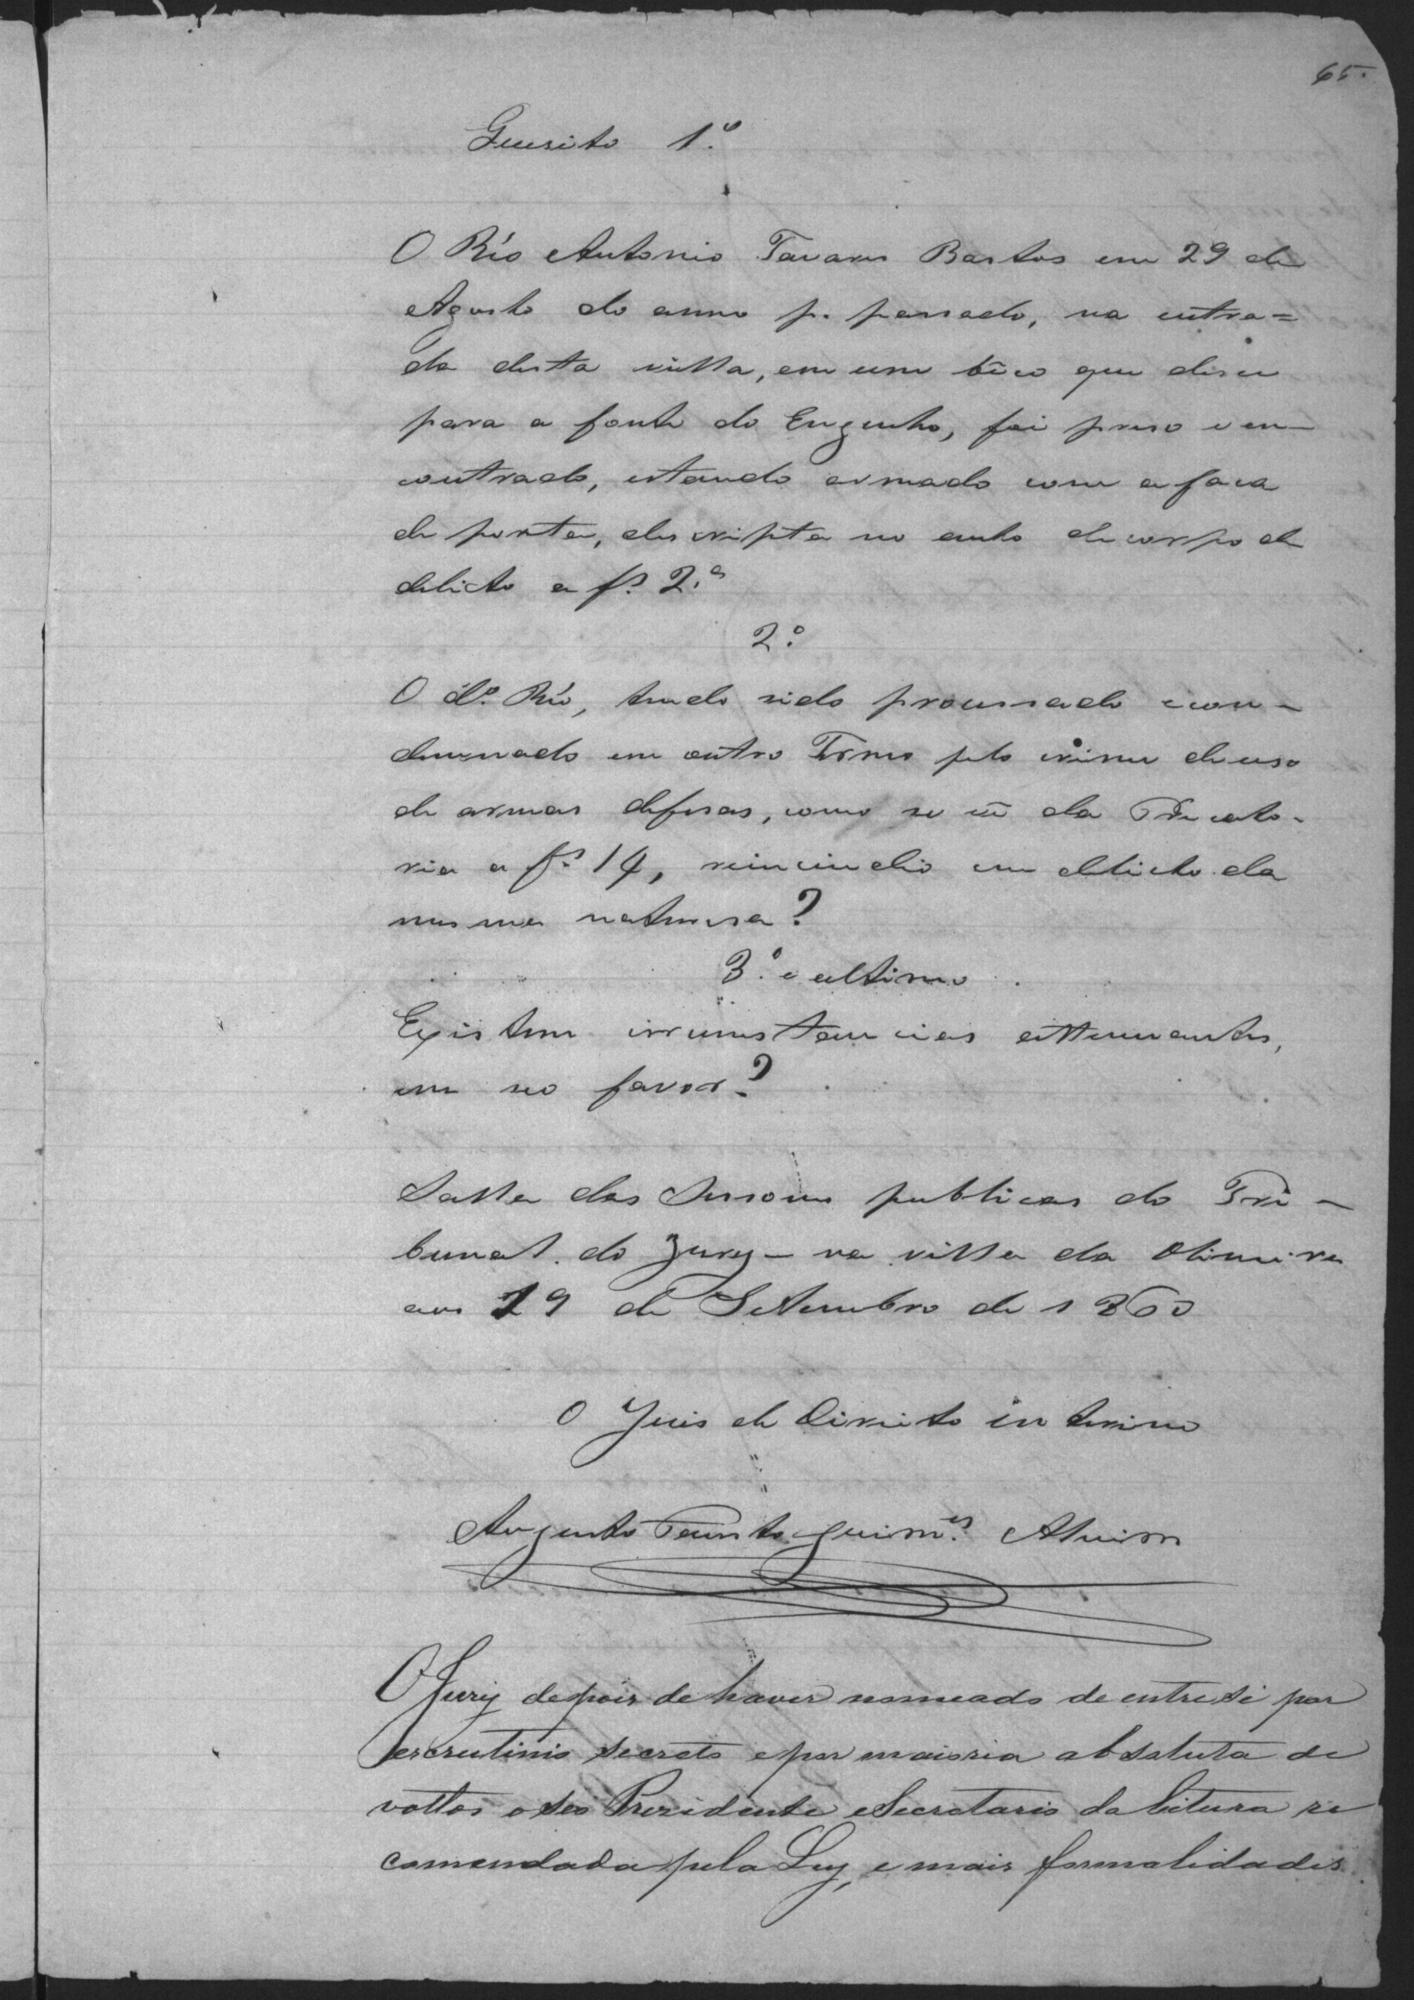 65.
Quesito 1.º
O Réo Antonio Tavares Bastos em 29 de
Agosto do anno p. passado, na entra=
da desta villa, em um bêco que desce
para a fonte do Engenho, foi preso e en-
contrado, estando armado com a faca
de ponta, descripta no auto de corpo de
delicto a f.s 2.ª
2.º
O d.º Réo, tendo sido processado e con-
demnado em outro Termo pelo crime de uso
de armas defesas, como se vê da Precato-
ria a f.s 14, reincindio em delicto da
mesma naturesa?
3.º e ultimo
Existem circunstancias attenuantes,
em seo favor?
Salla das Sessoens publicas do Tri-
bunal do Jury - na villa da Oliveira
aos 29 de Setembro de 1860
O Juis de Direito interino
Augusto Guim.es Alvim
O Jury depois de haver nomeado de entre si por
escrutinio secreto e por maioria absoluta de
vottos o seo Prezidente e Secretario da leitura re
comendada pela Ley, e mais formalidades